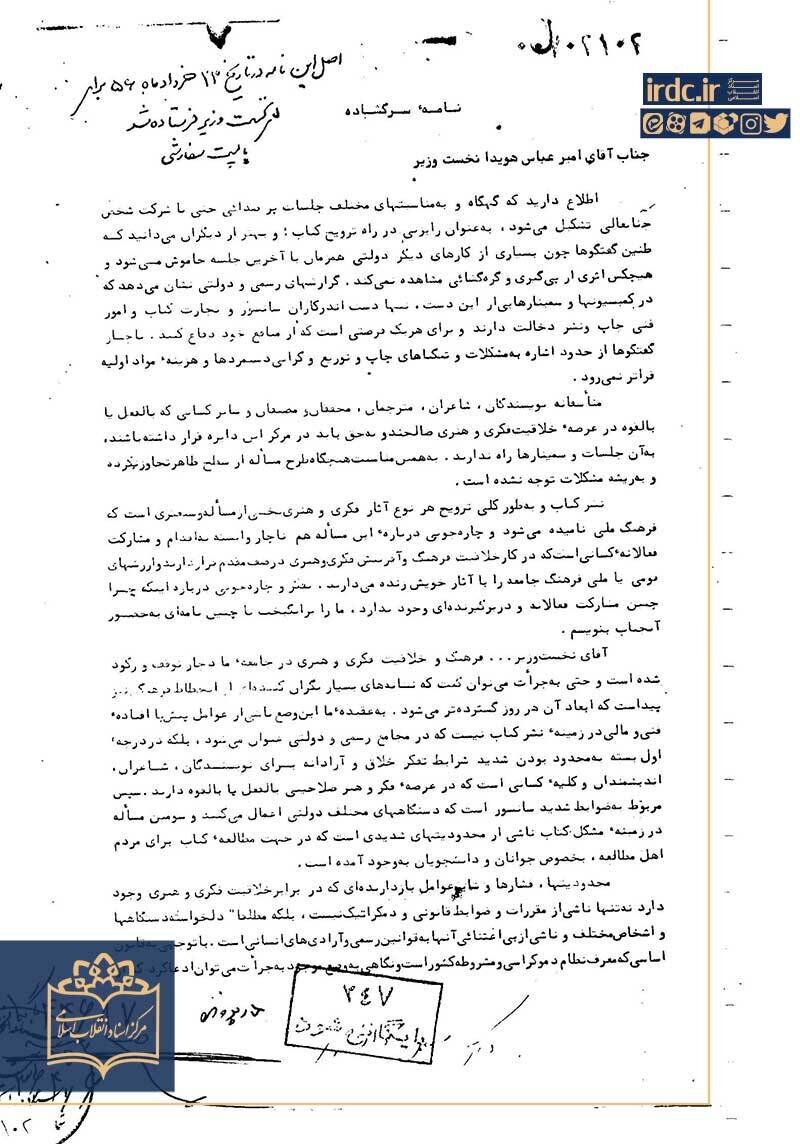 ل/۰۲۱۰۲
اصل این نامه در تاریخ ۲۳ خرداد ماه ۵۶ برای
نخست وزیر فرستاده شد
با پست سفارشی
مرکز اسناد انقلاب اسلامی
irdc.ir
نامهٔ سرگشاده
جناب آقای امیر عباس هویدا نخست وزیر
اطلاع دارید که گهگاه و به‌مناسبتهای مختلف جلسات پر صدائی حتی با شرکت شخص
جنابعالی تشکیل می‌شود، به‌عنوان رایزنی در راه ترویج کتاب؛ و بهتر از دیگران می‌دانید که
طنین گفتگوها چون بسیاری از کارهای دیگر دولتی همزمان با آخرین جلسه خاموش می‌شود و
هیچکس اثری از پی‌گیری و گره‌گشائی مشاهده نمی‌کند. گزارشهای رسمی و دولتی نشان می‌دهد که
در کمیسیونها و سمینارهایی از این دست، تنها دست اندرکاران سانسور و تجارت کتاب و امور
فنی چاپ ونشر دخالت دارند و برای هریک فرصتی است که از منافع خود دفاع کنند. ناچار
گفتگوها از حدود اشاره به‌مشکلات و تنگناهای چاپ و توزیع و گرانی دستمزدها و هزینهٔ مواد اولیه
فراتر نمی‌رود.
متأسفانه نویسندگان، شاعران، مترجمان، محققان و مصنفان و سایر کسانی که بالفعل یا
بالقوه در عرصهٔ خلاقیت فکری و هنری صالحند و به‌حق باید در مرکز این دایره قرار داشته باشند،
به‌آن جلسات و سمینارها راه ندارند. به‌همین مناسبت هیچگاه طرح مسأله از سطح ظاهر تجاوز نکرده
و به‌ریشه مشکلات توجه نشده است.
نشر کتاب و به‌طور کلی ترویج هر نوع آثار فکری و هنری بخشی از مسأله وسیعتری است که
فرهنگ ملی نامیده می‌شود و چاره‌جویی دربارهٔ این مسأله هم ناچار وابسته به‌اقدام و مشارکت
فعالانهٔ کسانی است که در کار خلاقیت فرهنگ و آفرینش فکری و هنری در صف مقدم قرار دارند و ارزشهای
قومی یا ملی فرهنگ جامعه را با آثار خویش زنده می‌دارند. تفکر و چاره‌جویی درباره اینکه چرا
چنین مشارکت فعالانه و دربرگیرنده‌ای وجود ندارد، ما را برانگیخت تا چنین نامه‌ای به‌حضور
آنجناب بنویسیم.
آقای نخست‌وزیر... فرهنگ و خلاقیت فکری و هنری در جامعهٔ ما دچار توقف و رکود
شده است و حتی به‌جرأت می‌توان گفت که نشانه‌های بسیار نگران کننده‌ای از انحطاط فرهنگی نیز
پیداست که ابعاد آن در روز گسترده‌تر می‌شود. به‌عقیدهٔ ما این وضع ناشی از عوامل پیش پا افتادهٔ
فنی و مالی در زمینهٔ نشر کتاب نیست که در مجامع رسمی و دولتی عنوان می‌شود، بلکه در درجهٔ
اول بسته به‌محدود بودن شدید شرایط تفکر خلاق و آزادانه برای نویسندگان، شاعران،
اندیشمندان و کلیهٔ کسانی است که در عرصهٔ فکر و هنر صلاحیتی بالفعل یا بالقوه دارند. سپس
مربوط به‌ضوابط شدید سانسور است که دستگاههای مختلف دولتی اعمال می‌کنند و سومین مسأله
در زمینهٔ مشکل کتاب ناشی از محدودیتهای شدیدی است که در جهت مطالعهٔ کتاب برای مردم
اهل مطالعه، بخصوص جوانان و دانشجویان به‌وجود آمده است.
محدودیتها، فشارها و سایر عوامل بازدارنده‌ای که در برابر خلاقیت فکری و هنری وجود
دارد نه‌تنها ناشی از مقررات و ضوابط قانونی و دمکراتیک نیست، بلکه مطلقا" دلخواسته دستگاهها
و اشخاص مختلف و ناشی از بی اعتنائی آنها به‌قوانین رسمی و آزادی‌های انسانی است. با توجهی به‌قانون
اساسی که معرف نظام دموکراسی و مشروطه کشور است و نگاهی به‌وضع موجود به‌جرأت می‌توان ادعا کرد که
۳۴۷
مرکز اسناد انقلاب اسلامی